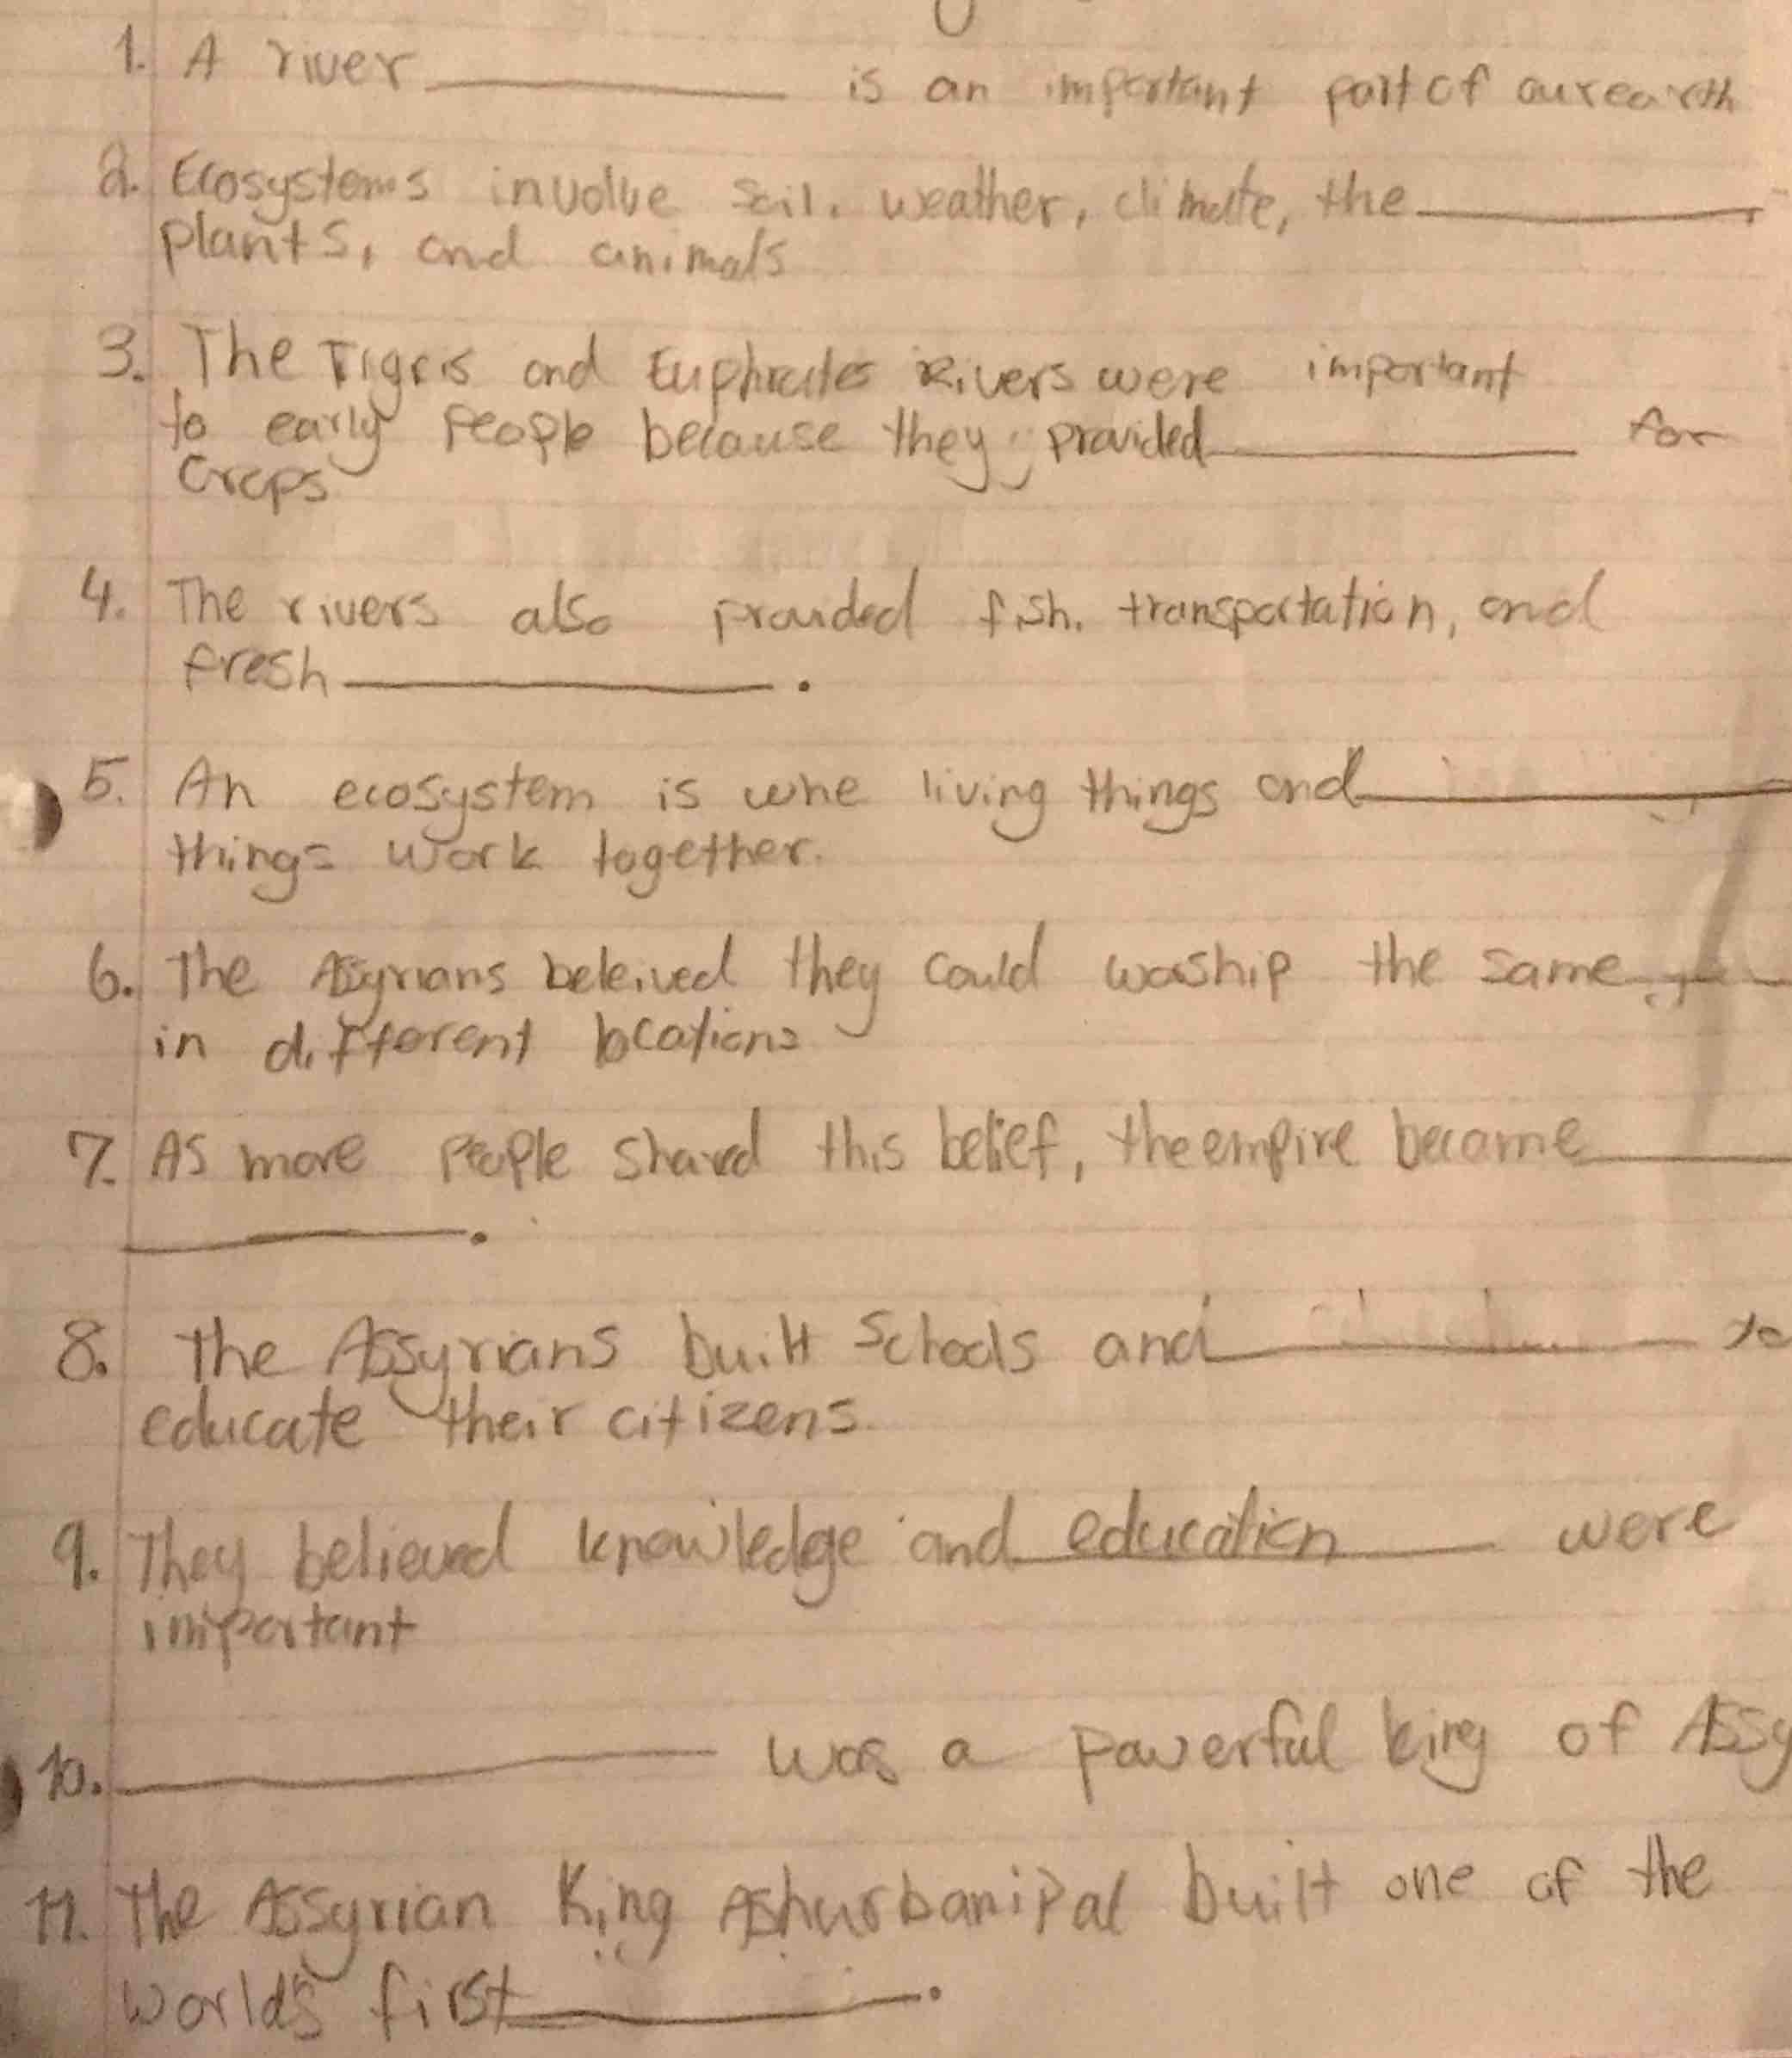 1. A river __________ is an important part of our earth
2. Ecosystems involve soil, weather, climate, the __________,
plants, and animals
3. The Tigris and Euphrates Rivers were important
to early people because they provided __________ for
crops
4. The rivers also provided fish, transportation, and
fresh __________.
5. An ecosystem is whe living things and __________
things work together.
6. The Assyrians beleived they could worship the same ______
in different locations
7. As more people shared this belief, the empire became ______
__________.
8. The Assyrians built schools and __________ to
educate their citizens.
9. They believed knowledge and education were
important
10. __________ was a powerful king of Assy
11. The Assyrian King Ashurbanipal built one of the
world's first __________.